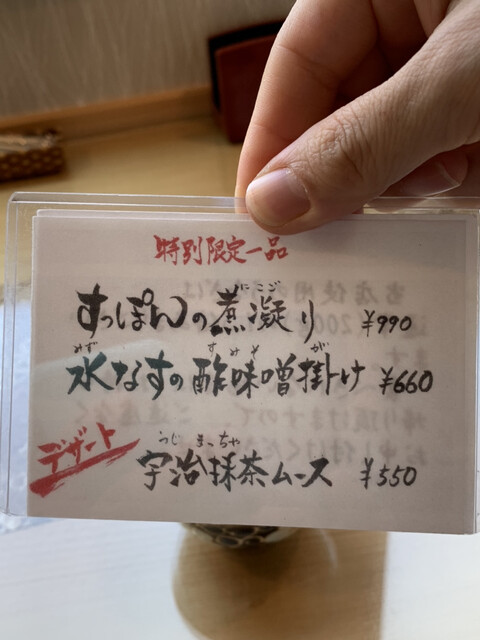 特別限定一品
にこご
すっぽんの煮凝り ¥990
みず すみそ が
水なすの酢味噌掛け ¥660
デザート
うじ まっちゃ
宇治抹茶ムース ¥550